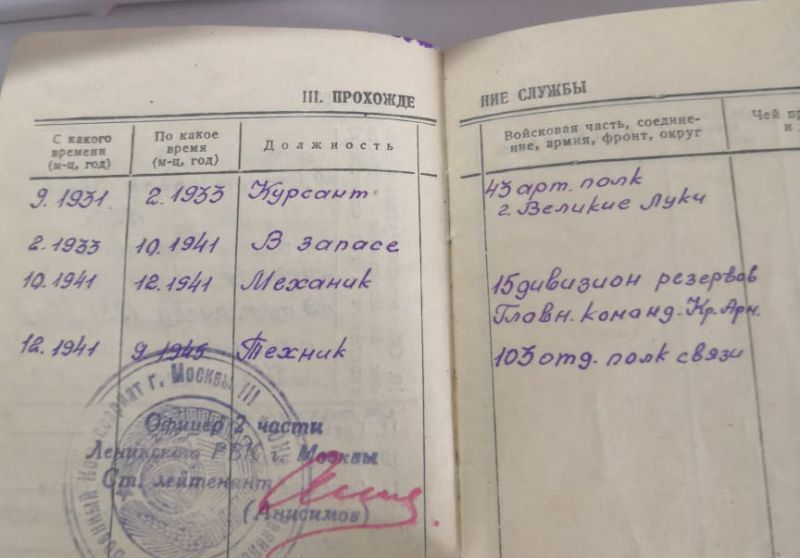 III. ПРОХОЖДЕНИЕ СЛУЖБЫ
С какого времени (м-ц, год)
По какое время (м-ц, год)
Должность
Войсковая часть, соединение, армия, фронт, округ
Чей
9.1931 2.1933 Курсант 43 арт. полк
г. Великие Луки
2.1933 10.1941 В запасе
10.1941 12.1941 Механик 15 дивизион резервов
Главн. команд. Кр. Арм.
12.1941 9 1945 Техник 103 отд. полк связи
г. Москвы III
Офицер 2 части
Ленинского РВК г. Москвы
Ст. лейтенант
(Анисимов)